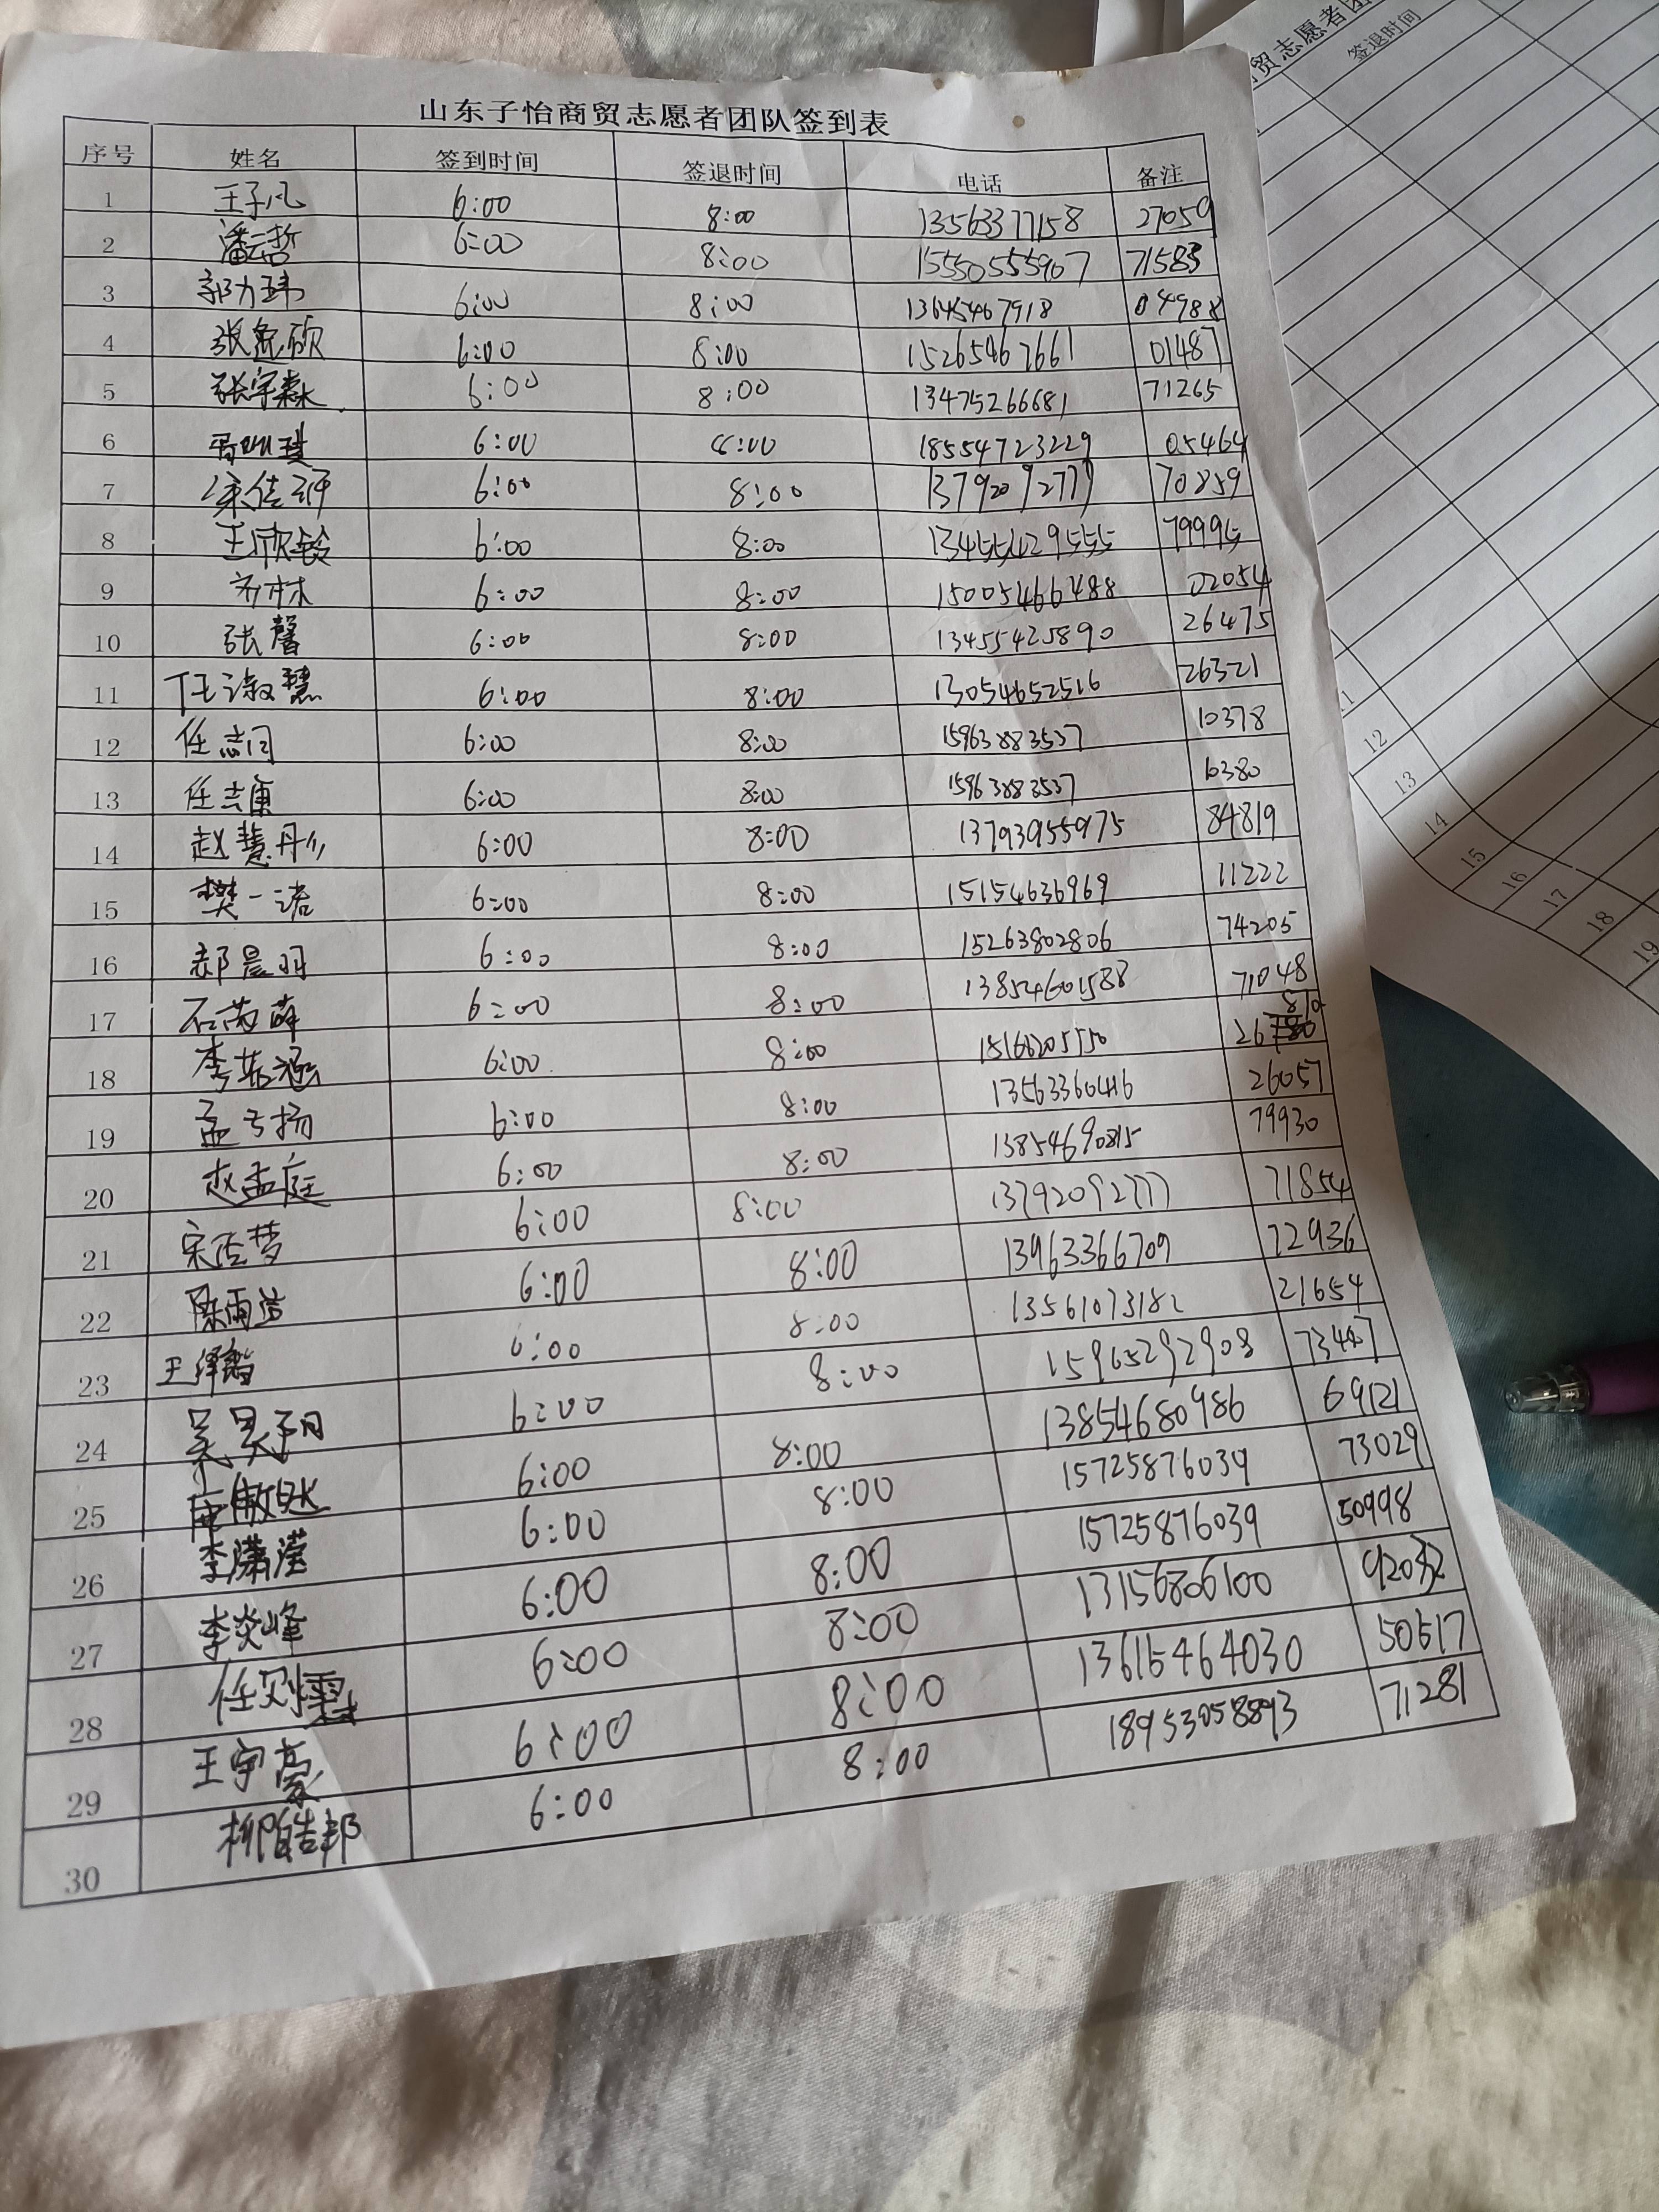 山东子怡商贸志愿者团队签到表
序号 姓名 签到时间 签退时间 电话 备注
1 王子凡 6:00 8:00 13563377158 27059
2 潘云哲 6:00 8:00 15550555907 71583
3 郭力玮 6:00 8:00 13645467918 04988
4 张 硕 6:00 8:00 15265467661 01487
5 张宇森 6:00 8:00 13475266681 71265
6 6:00 :00 18554723229 05464
7 佳 6:00 8:00 13792092777 70859
8 王欣铃 6:00 8:00 13455429555 79995
9 齐林 6:00 8:00 15005466488 02054
10 张馨 6:00 8:00 13455425890 26475
11 任淑慧 6:00 8:00 13054652516 26321
12 任志闩 6:00 8:00 15963883537 10378
13 任志重 6:00 8:00 15963883537 10380
14 赵慧彤 6:00 8:00 13793955975 84819
15 樊一诺 6:00 8:00 15154636969 11222
16 郝晨羽 6:00 8:00 15263802806 74205
17 石芮萌 6:00 8:00 13854601588 71048
18 李芯涵 6:00 8:00 15166205550 26
19 孟弓扬 6:00 8:00 13563360416 26057
20 赵孟庭 6:00 8:00 13854690815 79930
21 宋佳梦 6:00 8:00 13792092777 71854
22 陈雨洁 6:00 8:00 13963366709 72936
23 王泽 6:00 8:00 13561073182 21654
24 吴昊阳 6:00 8:00 15965292908 73447
25 6:00 8:00 13854680986 69121
26 李潇滢 6:00 8:00 15725876039 73029
27 李炎峰 6:00 8:00 15725876039 50998
28 任则霖 6:00 8:00 13156806100 92032
29 王宇豪 6:00 8:00 13615464030 50517
30 柳皓邦 6:00 8:00 18953058893 71281
贸志愿者团
签退时间
11
12
13
14
15
16
17
18
19